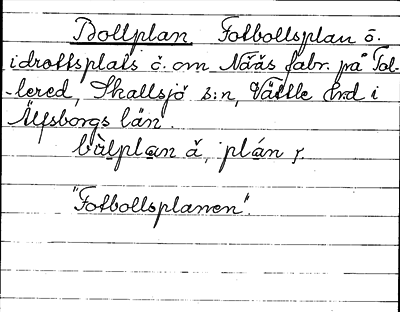 Bollplan Fotbollsplan o.
idrottsplats ö. om Nääs fabr. på Tol-
-lered, Skallsjö s:n, Vättle hd i
Älfsborgs län.
"Fotbollsplanen".